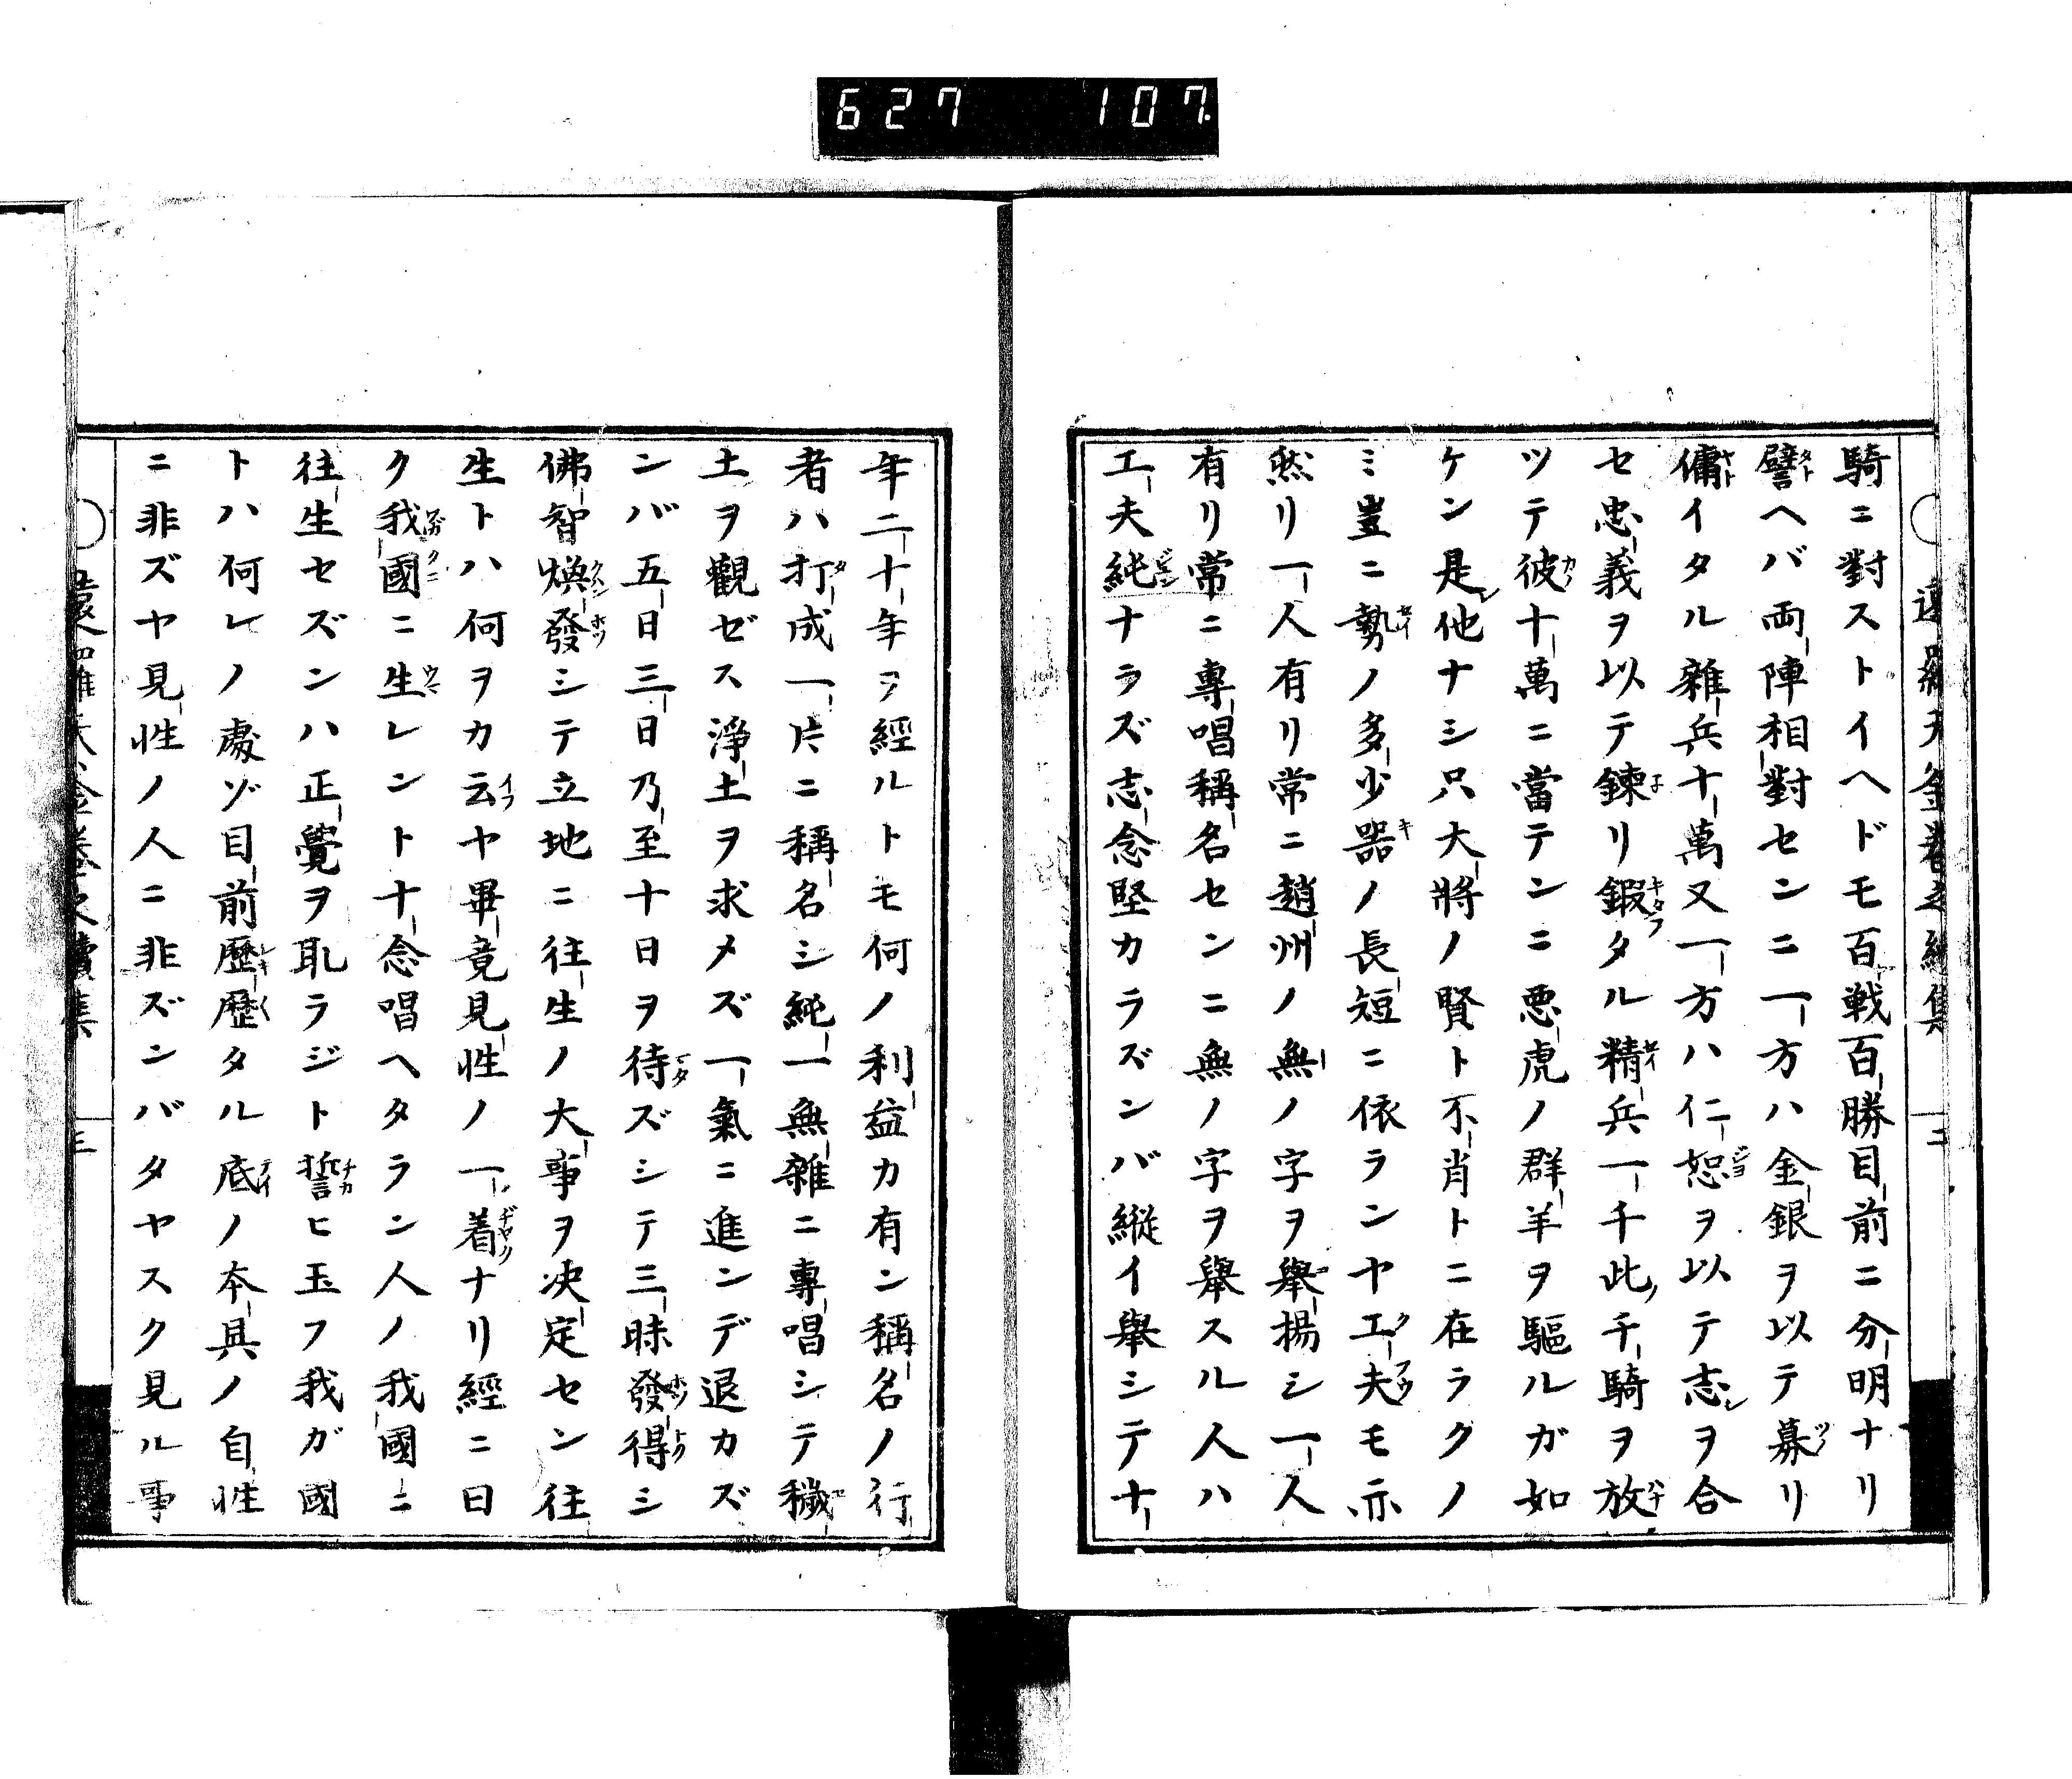 627 107
遠羅天釜巻之續集 二
騎ニ對ストイヘドモ百戦百勝目前ニ分明ナリ
譬ヘバ両陣相對センニ一方ハ金銀ヲ以テ募リ
傭イタル雜兵十萬又一方ハ仁恕ヲ以テ志ヲ合
セ忠義ヲ以テ鍊リ鍜タル精兵一千此千騎ヲ放
ツテ彼十萬ニ當テンニ悪虎ノ群羊ヲ驅ルガ如
ケン是他ナシ只大將ノ賢ト不肖トニ在ラクノ
ミ豈ニ勢ノ多少器ノ長短ニ依ランヤ工夫モ亦
然リ一人有リ常ニ趙州ノ無ノ字ヲ舉揚シ一人
有リ常ニ專唱稱名センニ無ノ字ヲ舉スル人ハ
工夫純ナラズ志念堅カラズンバ縦イ舉シテ十
年二十年ヲ經ルトモ何ノ利益カ有ン稱名ノ行
者ハ打成一片ニ稱名シ純一無雜ニ專唱シテ穢
土ヲ觀ゼス淨土ヲ求メズ一氣ニ進ンデ退カズ
ンバ五日三日乃至十日ヲ待ズシテ三昧發得シ
佛智煥發シテ立地ニ往生ノ大事ヲ决定セン往
生トハ何ヲカ云ヤ畢竟見性ノ一着ナリ經ニ曰
ク我國ニ生レント十念唱ヘタラン人ノ我國ニ
往生セズンハ正覺ヲ耴ラジト誓ヒ玉フ我ガ國
トハ何レノ處ゾ目前歷歷タル底ノ本具ノ自性
ニ非ズヤ見性ノ人ニ非ズンバタヤスク見ル事
遠羅天釜巻之續集 三